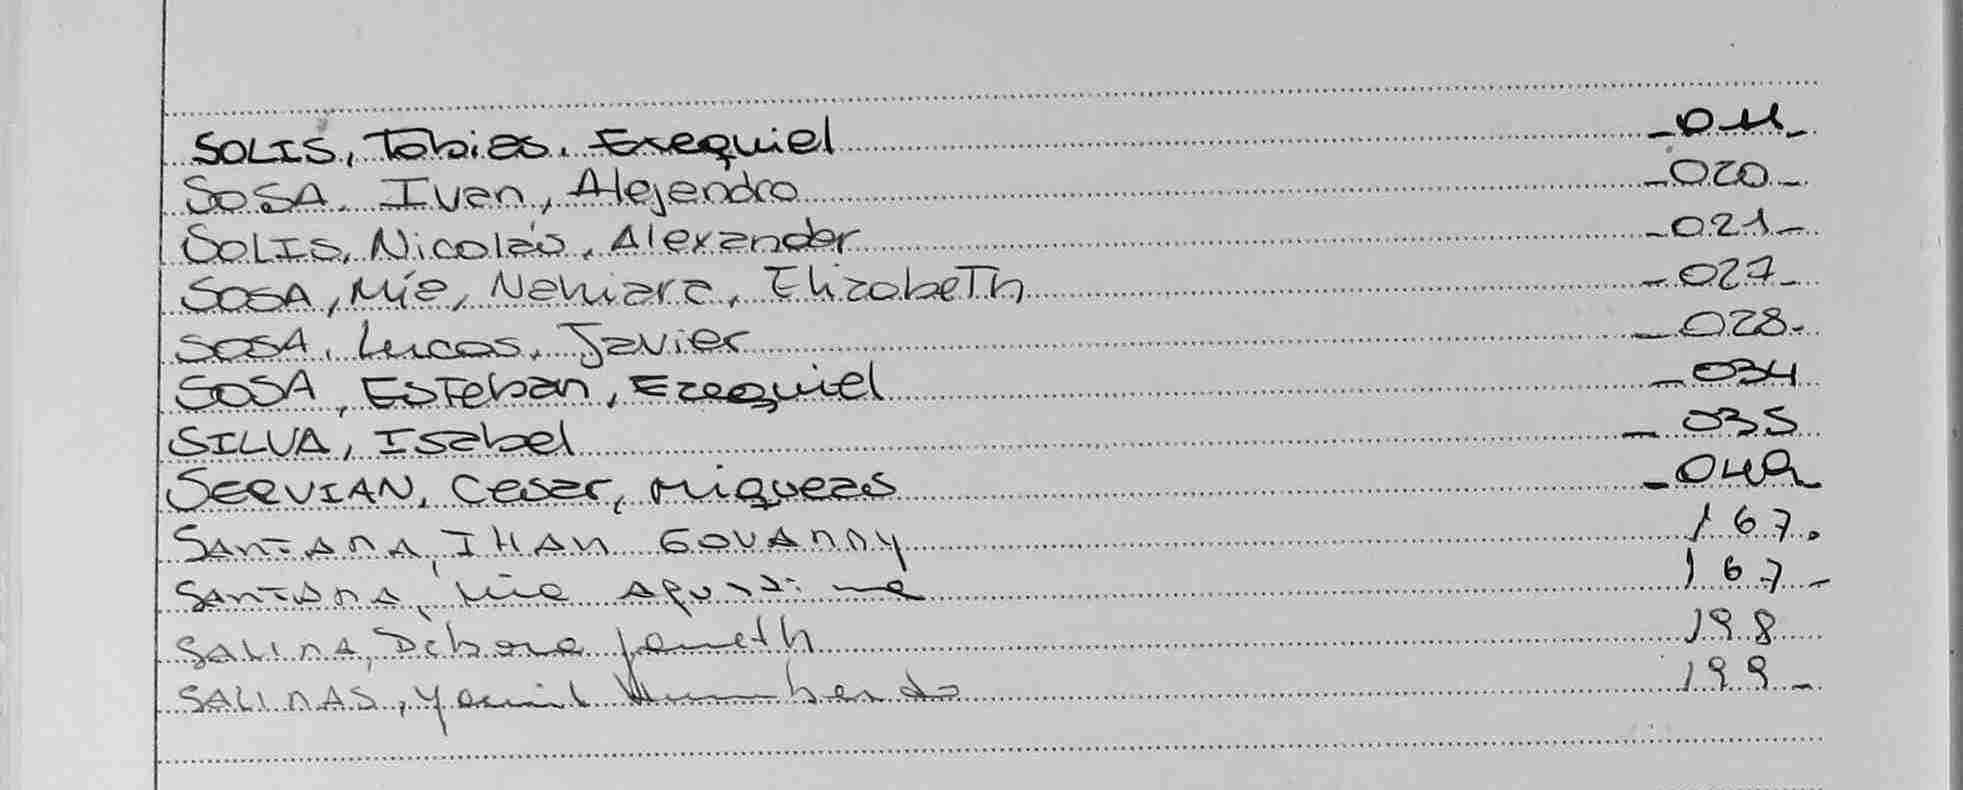 SOLIS, Tobias, Exequiel -011-
SOSA, Ivan, Alejandro -020-
SOLIS, Nicolás, Alexander -021-
SOSA, Mía, Nahiara, Elizabeth -027-
SOSA, Lucas, Javier -028-
SOSA, Esteban, Ezequiel -034
SILVA, Isabel - 035
SERVIAN, Cesar, Miqueas -049
SANTANA, IHAN GOVANNY 167.
SANTANA, Mia Agustina 167-
SALINA, Débora Janeth 198
SALINAS, Yamil Humberto 199-